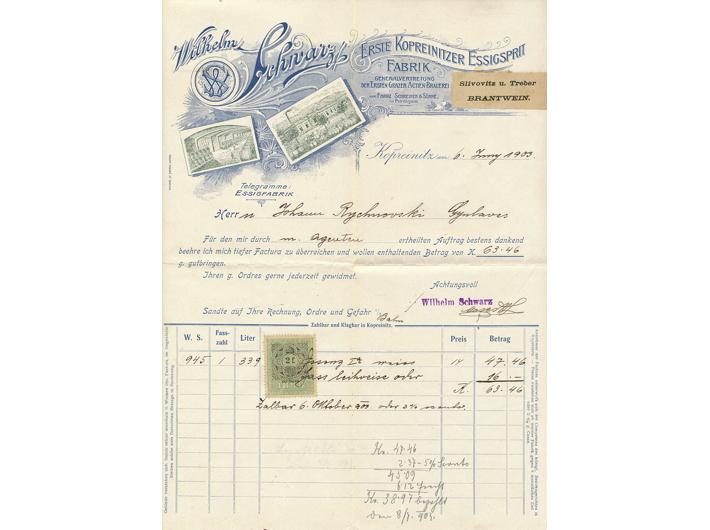 Wilhelm Schwarz
Erste Kopreinitzer Essigsprit
Fabrik
Generalvertretung
der Ersten Grazer Actien-Brauerei
vorm. Franz Schreiner & Söhne,
in Puntigam
Slivovitz u. Treber
BRANTWEIN.
Kopreinitz am 6. Juny 1903.
Telegramme:
Essigfabrik
Herrn Johann Rychnovski
Für den mir durch m. Agenten ertheilten Auftrag bestens dankend
beehre ich mich tiefer Factura zu überreichen und wollen enthaltenden Betrag von K. 63·46
g. gutbringen.
Ihren g. Ordres gerne jederzeit gewidmet.
Achtungsvoll
Wilhelm Schwarz
Sandte auf Ihre Rechnung, Ordre und Gefahr p. Bahn
Zahlbar und Klagbar in Kopreinitz.
W. S. Fass-zahl Liter Preis Betrag
945 1 339 14 47.46
Fass leihweise oder 16.—
K. 63·46
Zalbar 6. Oktober 903 oder 5%
Kr. 47·46
2·37 - 5% Sconto
45·09
6 12 Fracht
Kr. 38·97 bezahlt
den 8/7. 903.